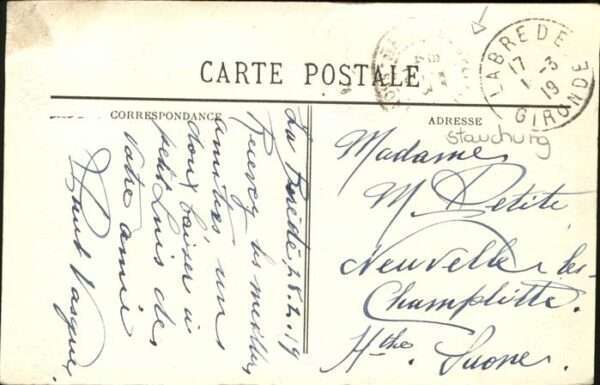 CARTE POSTALE
CORRESPONDANCE
ADRESSE
LABREDE
17 - 3
1 19
GIRONDE
Stauchung
La Brède 28.2.19
Recevez les meilleures
amitiés un
doux baiser à
petit Louis de
votre amie
Vasque
Madame
M. Petite
Neuvelle les
Champlitte.
Hthe. Saone.